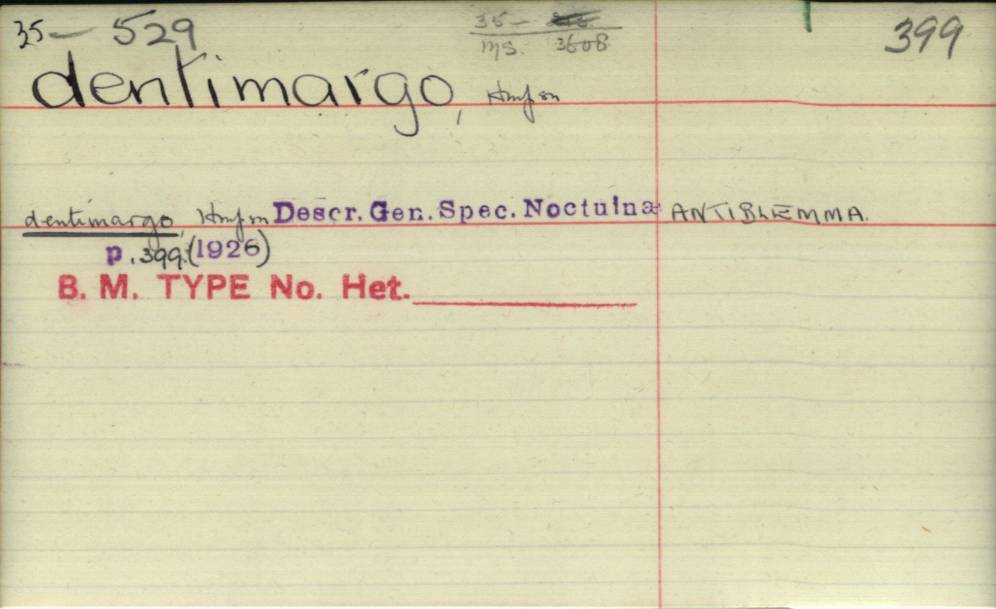 35 — 529
35 —
ms. 3608
399
dentimargo, Hmpsn
dentimargo, Hmpsn Descr. Gen. Spec. Noctuina ANTIBLEMMA.
p. 399. (1926)
B. M. TYPE No. Het.